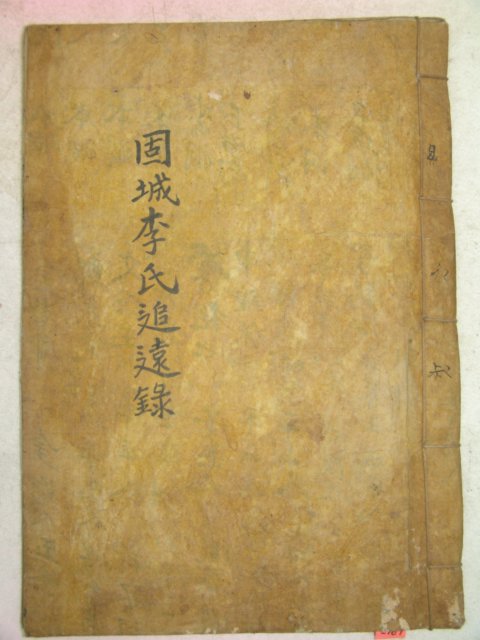 固城李氏追遠錄